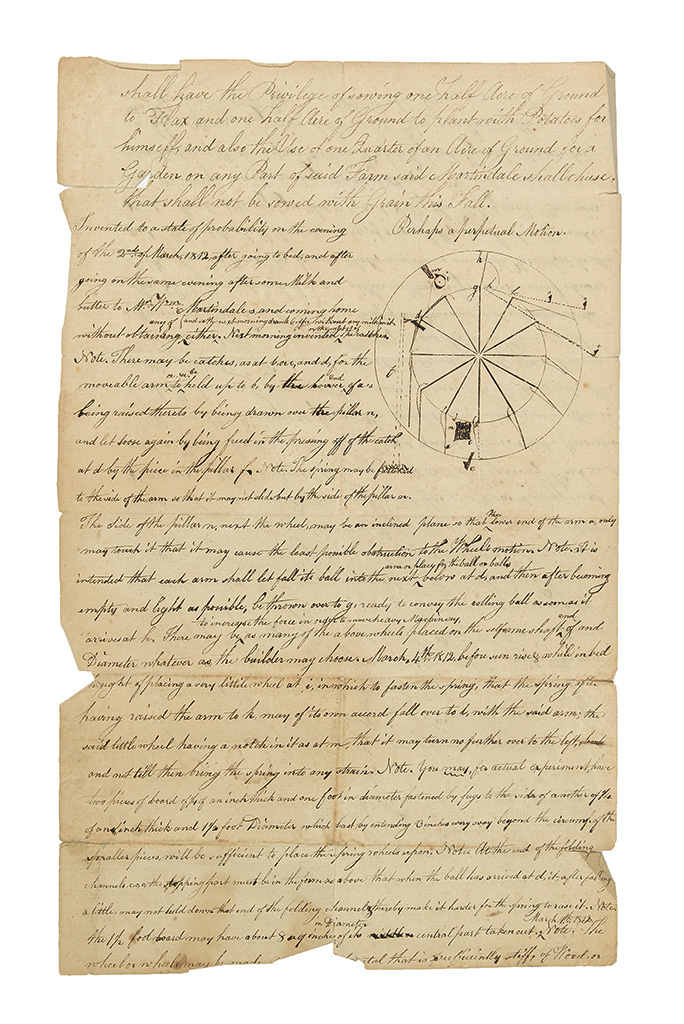 shall have the Privilege of sowing one half Acre of Ground
to Flax and one half Acre of Ground to plant with Potatoes for
himself, and also the Use of one Quarter of an Acre of Ground for a
Garden on any Part of said Farm said Martindale shall chuse.
that shall not be sowed with Grain this Fall.
Perhaps a perpetual Motion.
Invented to a state of probability on the evening
of the 2nd of March, 1812, after going to bed, and after
going on the same evening after some Milk and
butter to Wm Martindale's, and coming home
without obtaining any of either. Next morning invented the catches.
Note. There may be catches, as at b, c, and d, for the
moveable arm to be held up to b, by the end of a's
being raised thereto by being drawn over the pillar n,
and let loose again by being freed in the pressing off of the catch
at d by the piece in the pillar f. Note. The spring may be
to the side of the arm so that it may not slide but by the side of the pillar a.
The side of the pillar n, next the wheel, may be an inclined plane so that the lower end of the arm a, only
may touch it that it may cause the least possible obstruction to the Wheel's motion. Note. It is
intended that each arm shall let fall its ball into the next arm on place for the ball or balls below at d, and then after becoming
empty and light as possible, be thrown over to g, ready to convey the rolling ball as soon as it
to increase the force in order to move heavy Machinery,
arrives at h. There may be as many of the above wheels placed on the self same shaft, and of and
Diameter whatever as the builder may choose. March, 4th, 1812, before sun rise & while in bed
thought of placing a very little wheel at i, in which to fasten the spring, that the spring after
having raised the arm to k may of its own accord fall over to l, with the said arm; the
said little wheel having a notch in it as at m, that it may turn no further over to the left,
and not till then bring the spring into any strain. Note. You may, for actual experiment, have
two pieces of board of ½ of an inch thick and one foot in diameter fastened by pegs to the side of another of ½
of an inch thick and 1½ foot Diameter which last by extending 3 inches every way beyond the circumf. of the
smaller pieces, will be sufficient to place the spring wheels upon. Note. At the end of the folding
channels, the stopping part must be in the form as above that when the ball has arrived at d, it after falling
a little may not hold down that end of the folding channel & thereby make it harder for the spring to raise it.
March 1812.
the 1½ foot board may have about 8 inches in Diameter of its central part taken out. Note. The
wheel or wheels may be made metal that is sufficiently stiff, of Wood, or